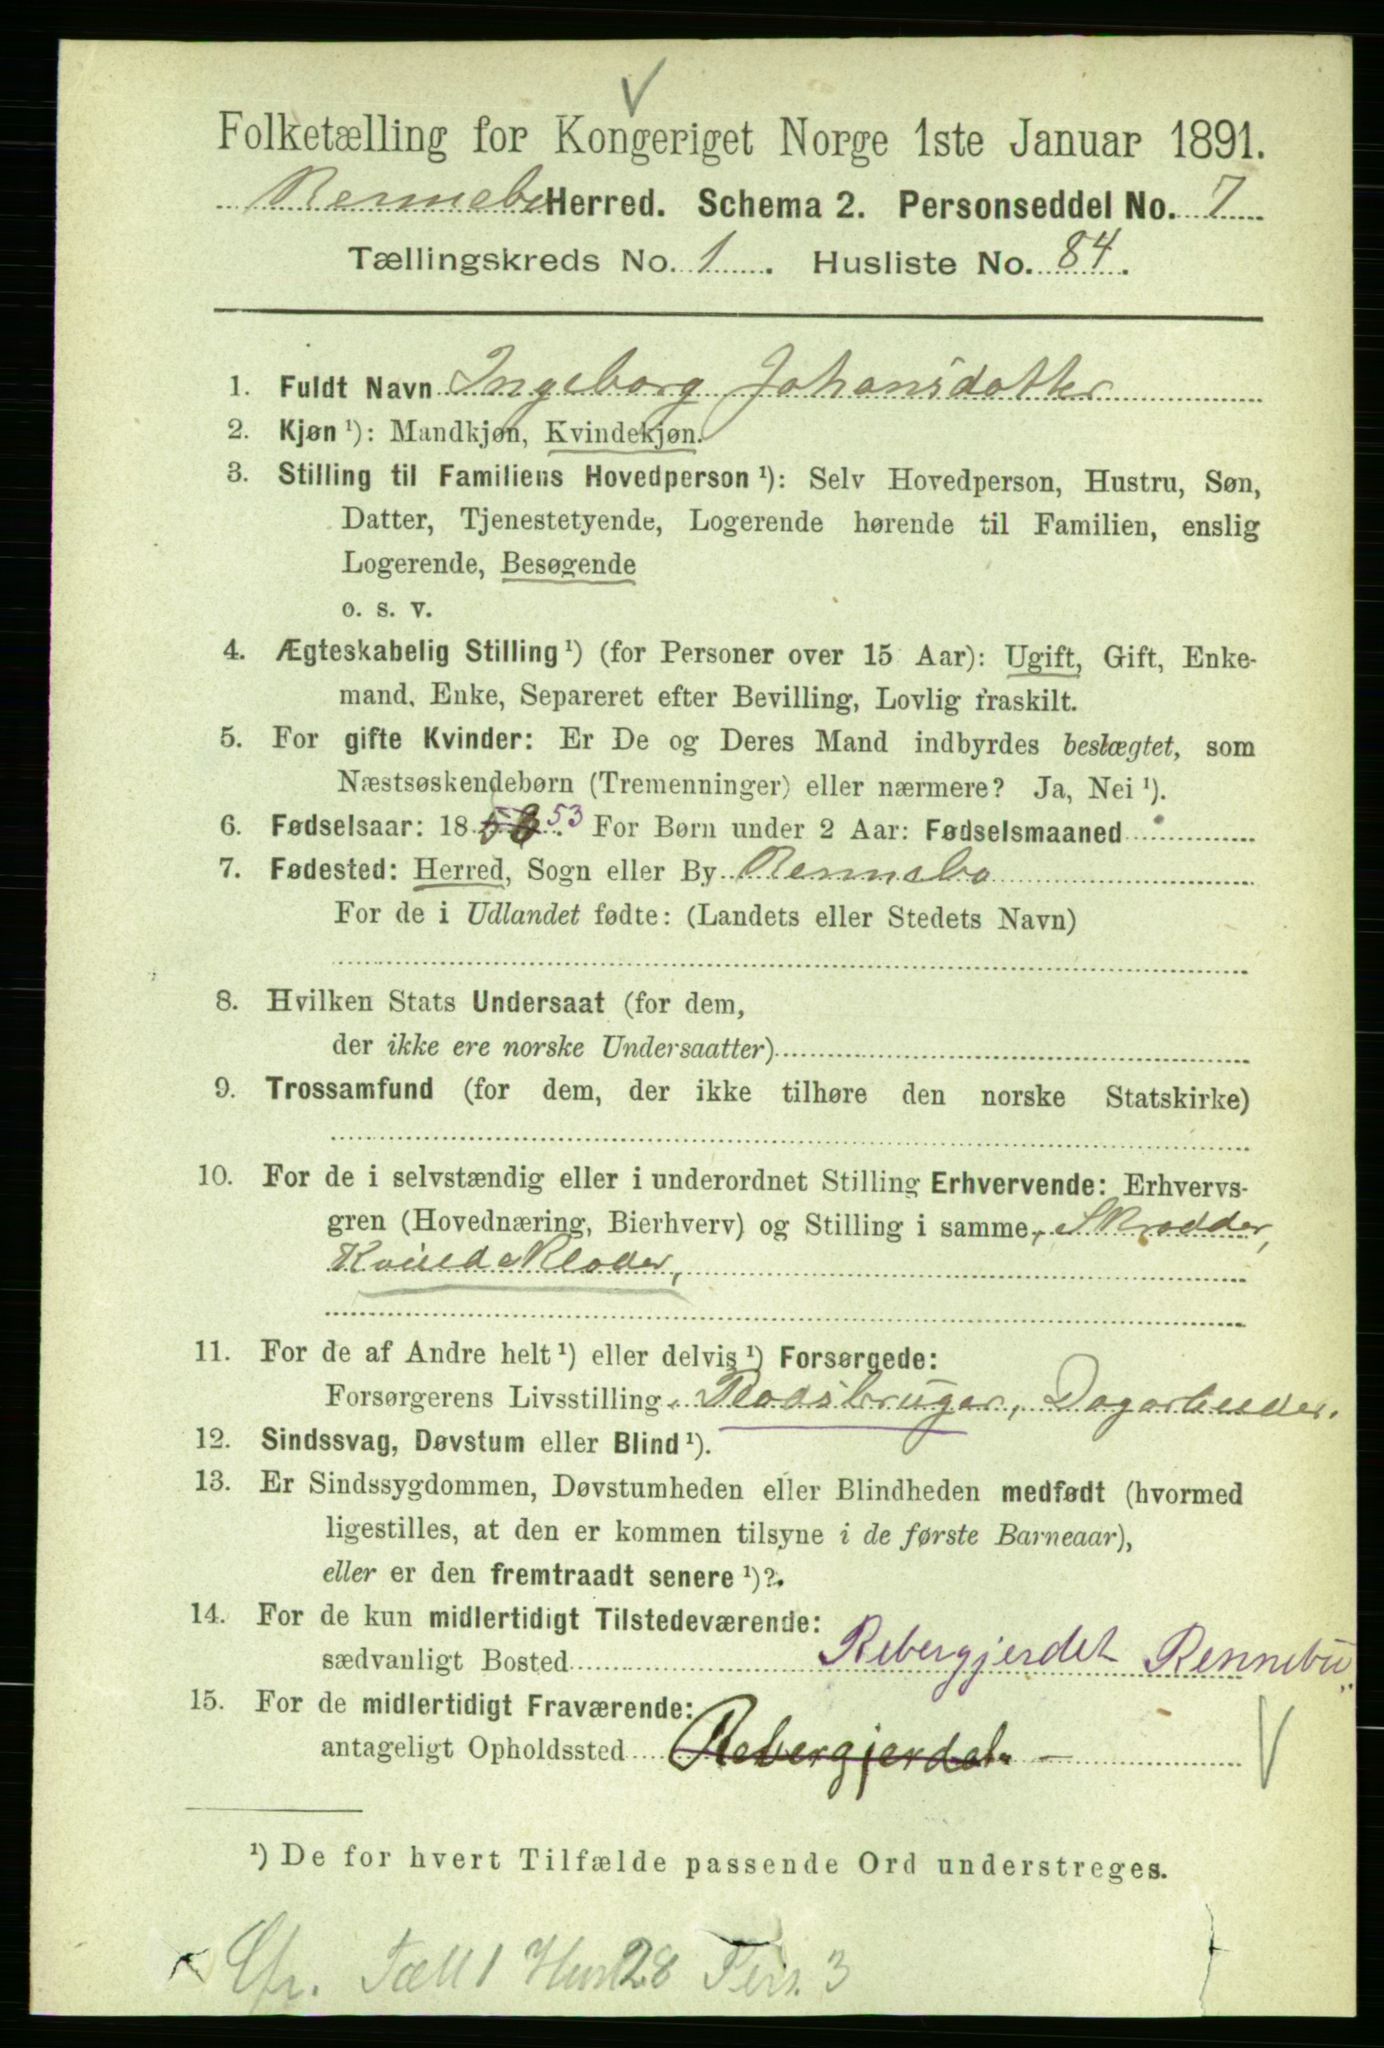 V
Folketælling for Kongeriget Norge 1ste Januar 1891.
Rennebu Herred. Schema 2. Personseddel No. 7
Tællingskreds No. 1. Husliste No. 84.
1. Fuldt Navn Ingeborg Johansdatter
2. Kjøn ¹): Mandkjøn, Kvindekjøn.
3. Stilling til Familiens Hovedperson ¹): Selv Hovedperson, Hustru, Søn,
Datter, Tjenestetyende, Logerende hørende til Familien, enslig
Logerende, Besøgende
o. s. v.
4. Ægteskabelig Stilling ¹) (for Personer over 15 Aar): Ugift, Gift, Enke-
mand, Enke, Separeret efter Bevilling, Lovlig fraskilt.
5. For gifte Kvinder: Er De og Deres Mand indbyrdes beslægtet, som
Næstsøskendebørn (Tremenninger) eller nærmere? Ja, Nei ¹).
6. Fødselsaar: 18 53. For Børn under 2 Aar: Fødselsmaaned
7. Fødested: Herred, Sogn eller By Rennebo
For de i Udlandet fødte: (Landets eller Stedets Navn)
8. Hvilken Stats Undersaat (for dem,
der ikke ere norske Undersaatter)
9. Trossamfund (for dem, der ikke tilhøre den norske Statskirke)
10. For de i selvstændig eller i underordnet Stilling Erhvervende: Erhvervs-
gren (Hovednæring, Bierhverv) og Stilling i samme, Skrædder,
Kvindeklæder,
11. For de af Andre helt ¹) eller delvis ¹) Forsørgede:
Forsørgerens Livsstilling Pladsbruger, Dagarbeider.
12. Sindssvag, Døvstum eller Blind ¹).
13. Er Sindssygdommen, Døvstumheden eller Blindheden medfødt (hvormed
ligestilles, at den er kommen tilsyne i de første Barneaar),
eller er den fremtraadt senere ¹)?
14. For de kun midlertidigt Tilstedeværende:
sædvanligt Bosted Rebergjerdet Rennebu
15. For de midlertidigt Fraværende:
antageligt Opholdssted Rebergjerdet V
¹) De for hvert Tilfælde passende Ord understreges.
Cfr. Tæll 1 Husl 28 Pers. 3